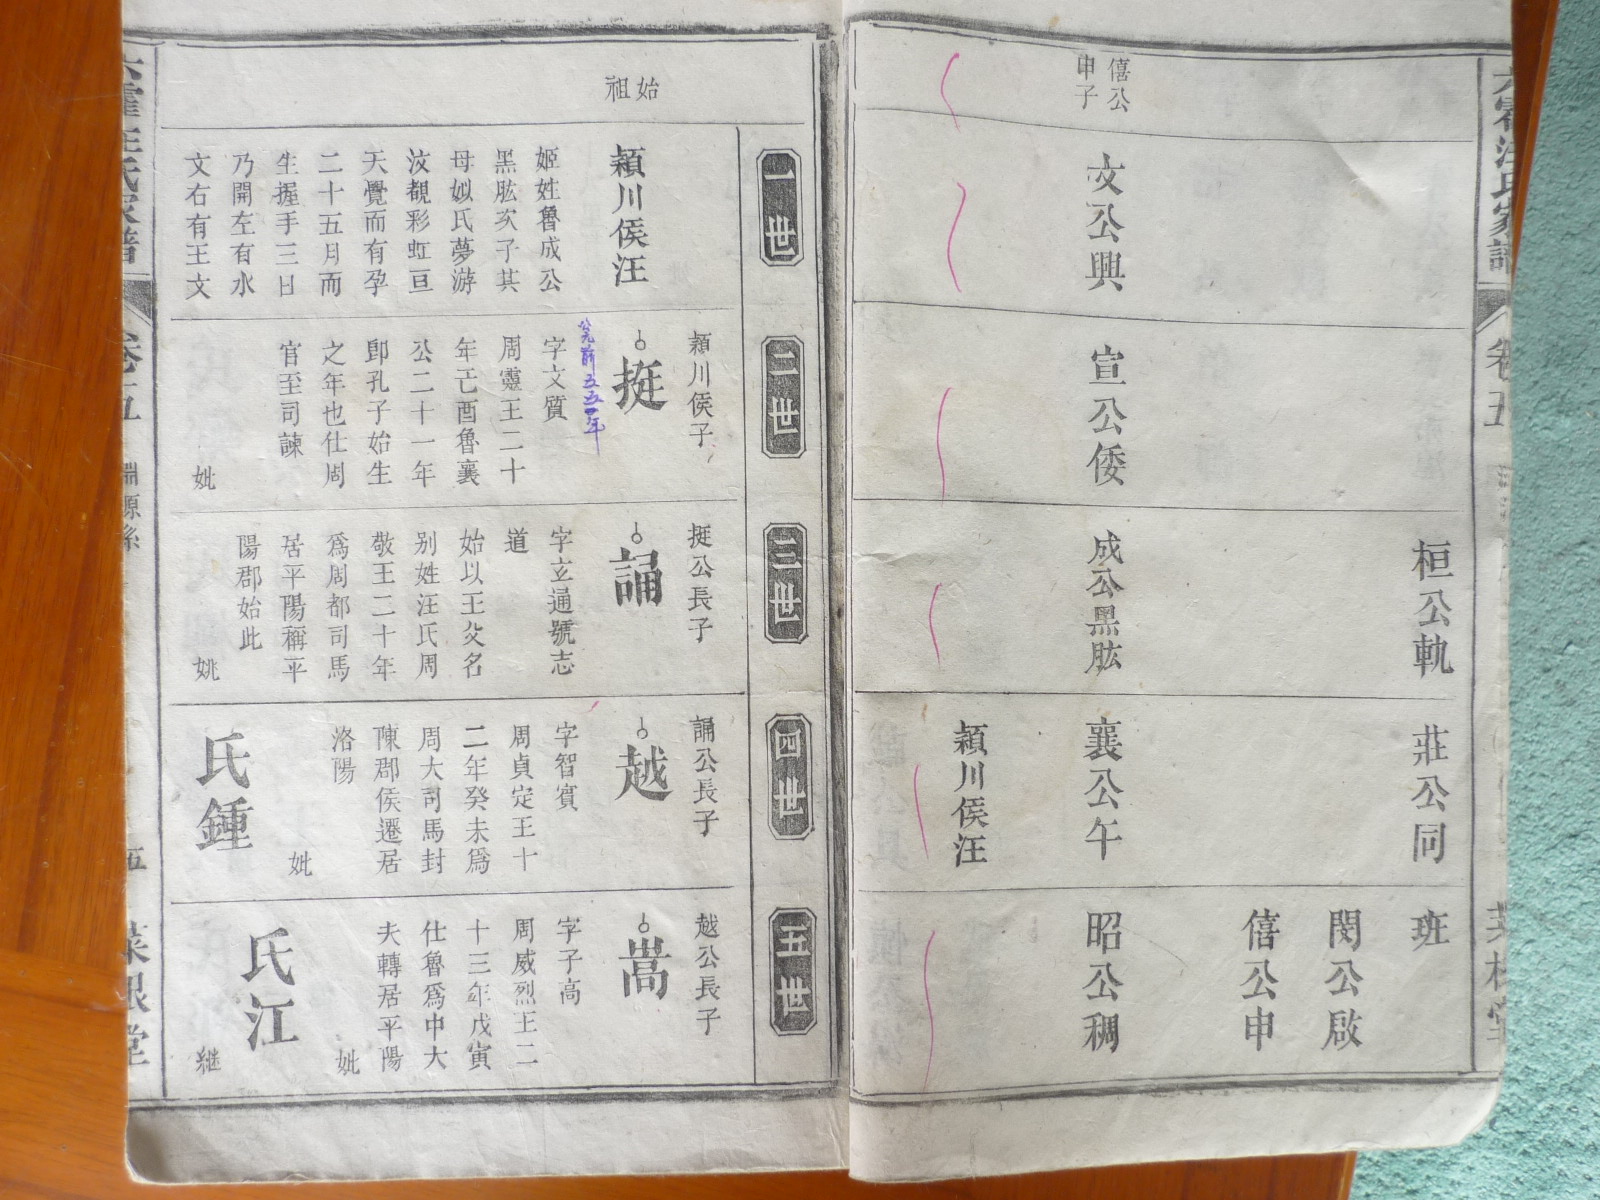 桓公軌
莊公同
班
閔公啟
僖公申
僖公
申子
文公興
宣公倭
成公黑肱
襄公午
昭公稠
潁川侯汪
一世
二世
三世
四世
五世
始祖
潁川侯汪
姬姓魯成公
黑肱次子其
母姒氏夢游
汶覩彩虹亘
天覺而有孕
二十五月而
生握手三日
乃開左有水
文右有王文
潁川侯子
挺
公元前五五一年
字文質
周靈王二十
年己酉魯襄
公二十一年
卽孔子始生
之年也仕周
官至司諫
妣
挺公長子
誦
字立通號志
道
始以王父名
別姓汪氏周
敬王二十年
爲周都司馬
居平陽稱平
陽郡始此
姚
誦公長子
越
字智賓
周貞定王十
二年癸未爲
周大司馬封
陳郡侯遷居
洛陽
妣
氏鍾
越公長子
嵩
字子高
周威烈王二
十三年戊寅
仕魯爲中大
夫轉居平陽
妣
氏江
継
卷五
淵源系
五